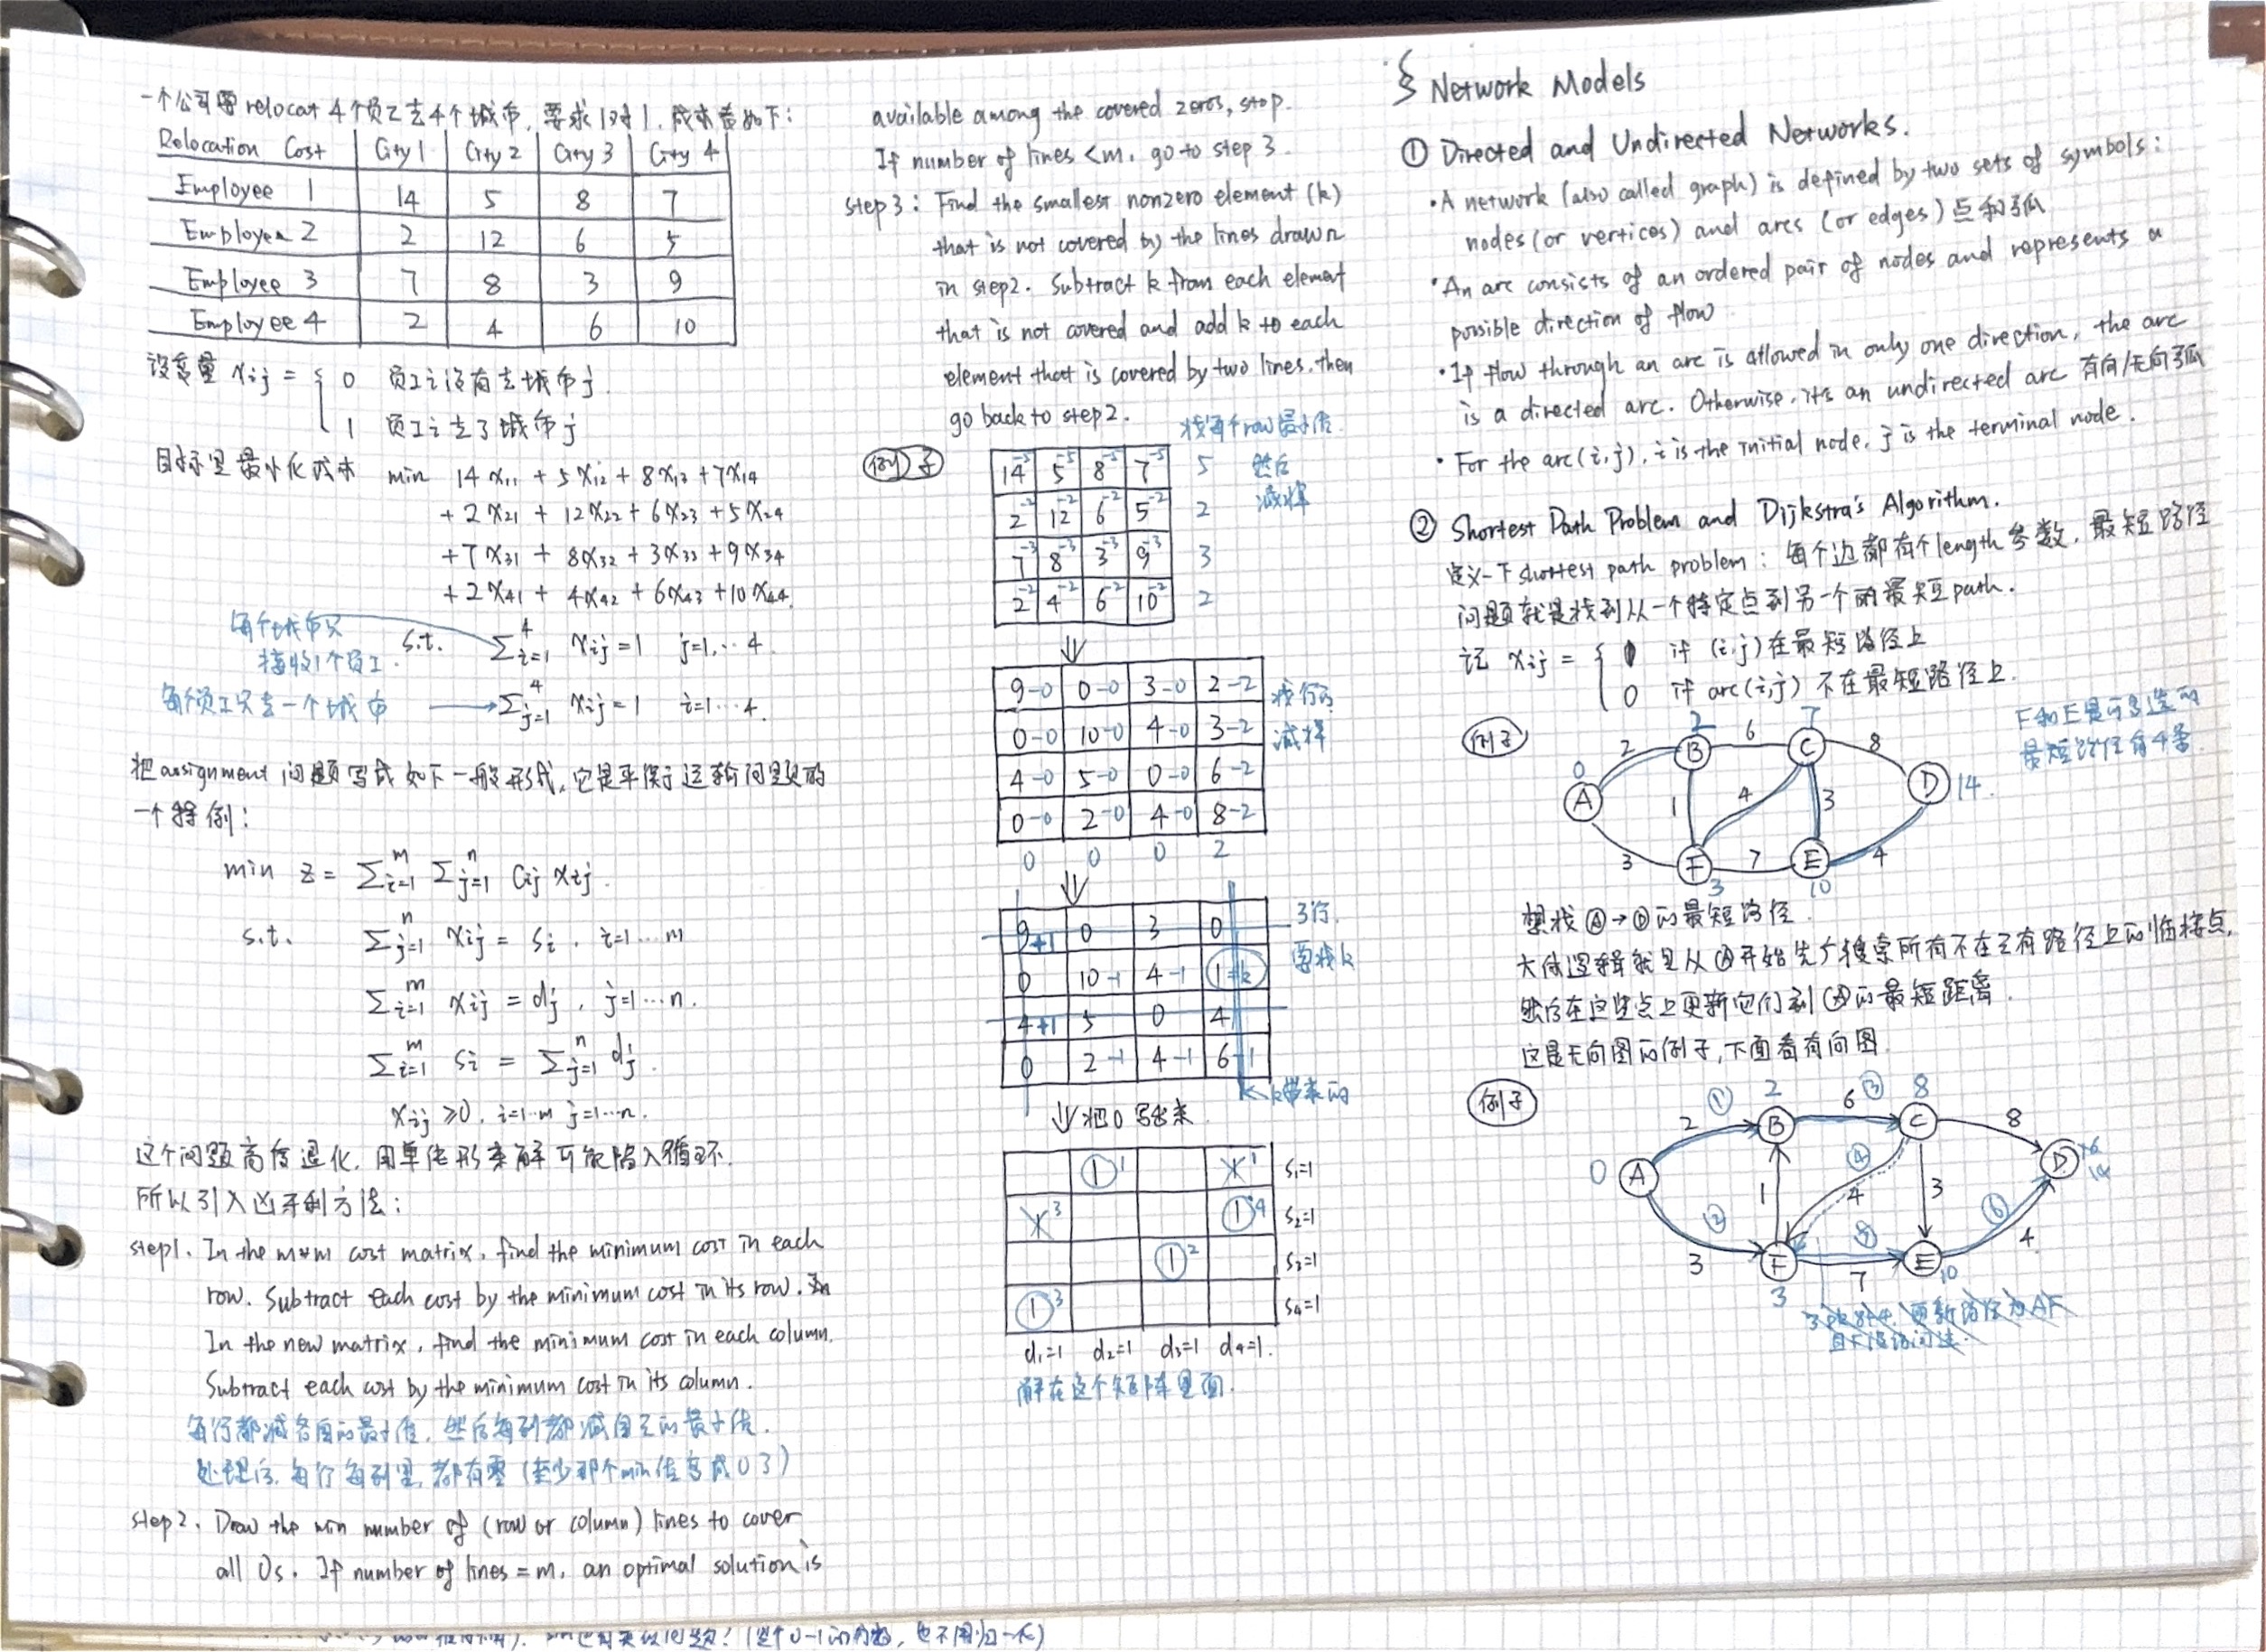 一个公司要relocat 4个员工去4个城市, 要求1对1. 成本表如下:
Relocation Cost City 1 City 2 City 3 City 4
Employee 1 14 5 8 7
Employee 2 2 12 6 5
Employee 3 7 8 3 9
Employee 4 2 4 6 10
设变量 xij = { 0 员工i没有去城市j.
1 员工i去了城市j
目标是最小化成本 min 14x11 + 5x12 + 8x13 + 7x14
+ 2x21 + 12x22 + 6x23 + 5x24
+ 7x31 + 8x32 + 3x33 + 9x34
+ 2x41 + 4x42 + 6x43 + 10x44.
每个城市只
接收1个员工.
s.t. Σ_{i=1}^{4} xij = 1 j=1,…4
每个员工只去一个城市 → Σ_{j=1}^{4} xij = 1 i=1…4.
把assignment问题写成如下一般形式, 它是平衡运输问题的
一个特例:
min z = Σ_{i=1}^{m} Σ_{j=1}^{n} Cij xij.
s.t. Σ_{j=1}^{n} xij = si, i=1…m
Σ_{i=1}^{m} xij = dj, j=1…n.
Σ_{i=1}^{m} si = Σ_{j=1}^{n} dj.
xij ≥0, i=1…m j=1…n.
这个问题高度退化, 用单纯形来解可能陷入循环.
所以引入匈牙利方法:
step1. In the m*m cost matrix, find the minimum cost in each
row. Subtract each cost by the minimum cost in its row.
In the new matrix, find the minimum cost in each column.
Subtract each cost by the minimum cost in its column.
每行都减各自的最小值, 然后每列都减自己的最小值.
处理后, 每行每列里, 都有零 (至少那个min值变成0了)
step2. Draw the min number of (row or column) lines to cover
all 0s. If number of lines = m, an optimal solution is
available among the covered zeros, stop.
If number of lines <m, go to step 3.
step3: Find the smallest nonzero element (k)
that is not covered by the lines drawn
in step2. Subtract k from each element
that is not covered and add k to each
element that is covered by two lines. then
go back to step2.
找每个row最小值
然后
减掉
例子
14-5 5-5 8-5 7-5 5
2-2 12-2 6-2 5-2 2
7-3 8-3 3-3 9-3 3
2-2 4-2 6-2 10-2 2
⇓
9-0 0-0 3-0 2-2
0-0 10-0 4-0 3-2
4-0 5-0 0-0 6-2
0-0 2-0 4-0 8-2
0 0 0 2
减掉
⇓
9+1 0 3 0 3行.
0 10-1 4-1 1=k 要找k
4+1 5 0 4
0 2-1 4-1 6-1
k带来的
⇓把0写出来
①1 X1 s1=1
X3 ①4 s2=1
①2 s3=1
①3 s4=1
d1=1 d2=1 d3=1 d4=1.
解在这个矩阵里面.
§ Network Models
① Directed and Undirected Networks.
·A network (also called graph) is defined by two sets of symbols:
nodes (or vertices) and arcs (or edges) 点和弧
·An arc consists of an ordered pair of nodes and represents a
possible direction of flow
·If flow through an arc is allowed in only one direction, the arc
is a directed arc. Otherwise, it's an undirected arc 有向/无向弧
·For the arc(i,j), i is the initial node, j is the terminal node.
② Shortest Path Problem and Dijkstra's Algorithm.
定义一下shortest path problem: 每个边都有个length参数, 最短路径
问题就是找到从一个特定点到另一个的最短path.
记 xij = { 1 if (i,j)在最短路径上
0 if arc(i,j) 不在最短路径上.
例子
0 A 2 2 B 6 7 C 8 D 14.
1 4 3
3 F 7 E 4
3 10
想找Ⓐ→Ⓓ的最短路径.
大体逻辑就是从Ⓐ开始先广搜索所有不在已有路径上的临接点,
然后在这些点上更新它们到Ⓐ的最短距离.
这是无向图的例子, 下面看有向图
例子
0 A 2 ① 2 B 6 ③ 8 C 8 D 16
14
1 ④ 4 3 ⑥
3 ② F ⑤ 7 E 4
3 10